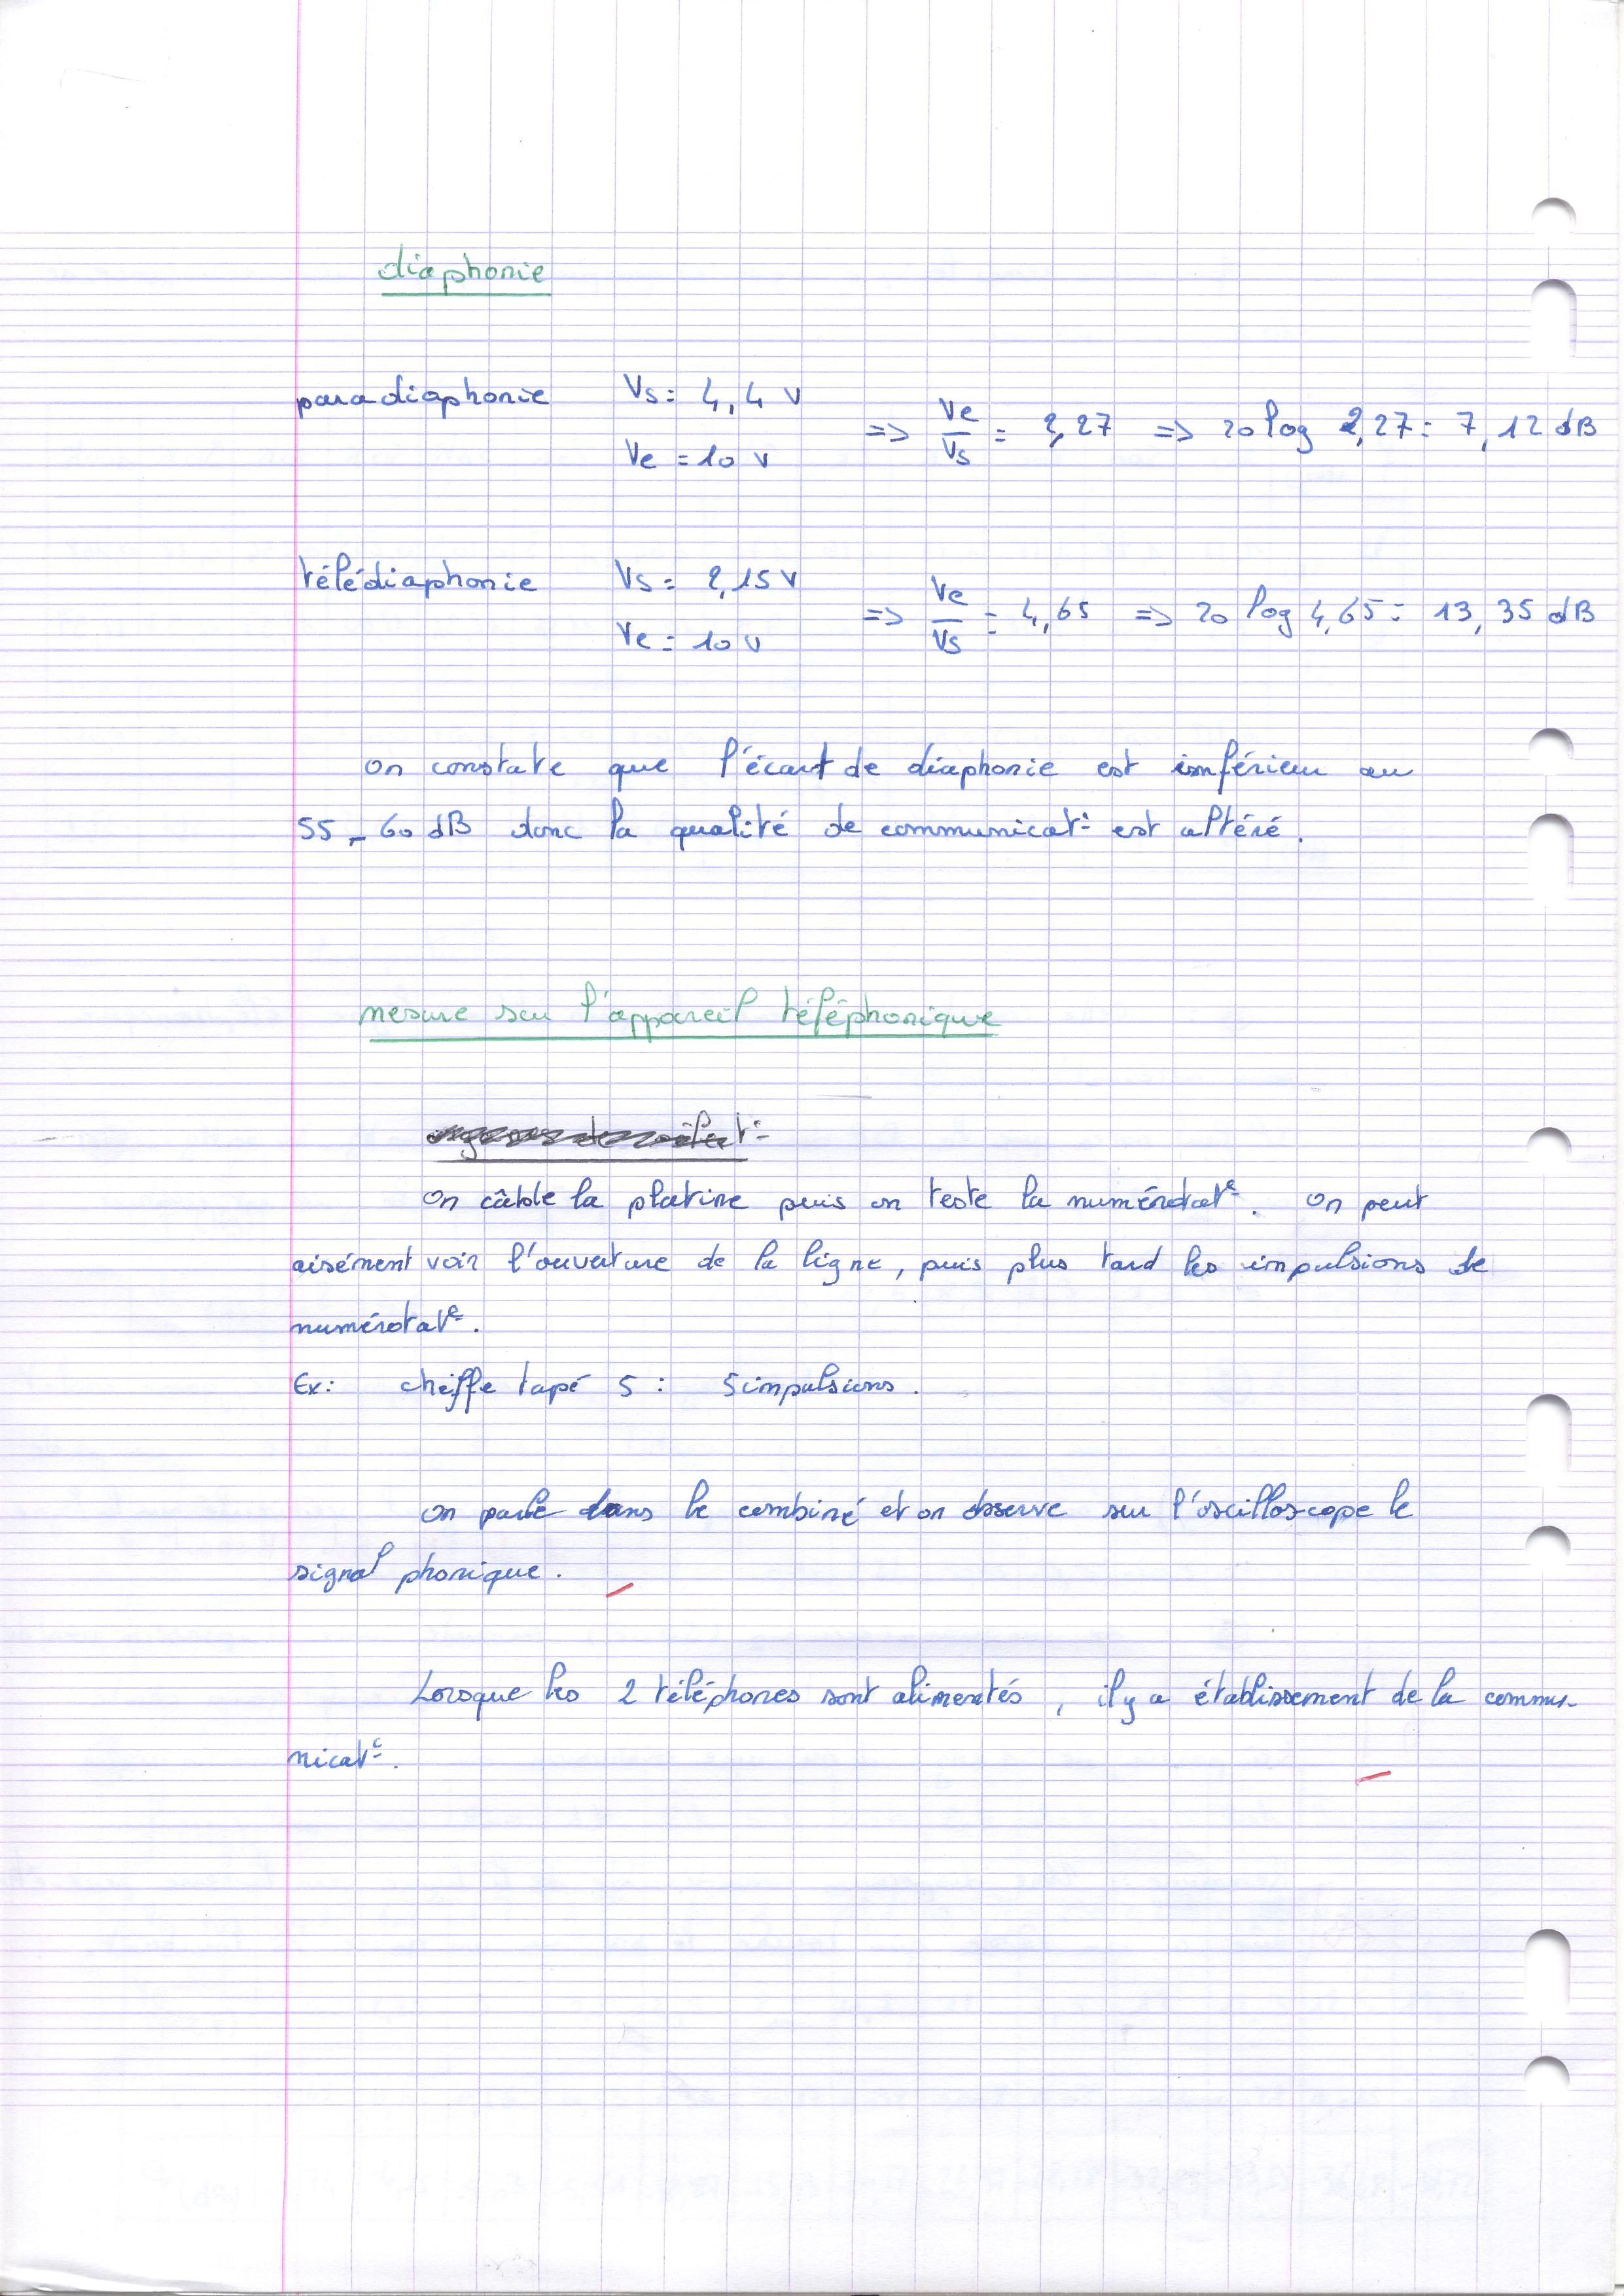 diaphonie
paradiaphonie Vs = 4,4 V
Ve = 10 V
=> Ve/Vs = 2,27 => 20 log 2,27 = 7,12 dB
télédiaphonie Vs = 2,15 V
Ve = 10 V
=> Ve/Vs = 4,65 => 20 log 4,65 = 13,35 dB
On constate que l'écart de diaphonie est inférieur au
55 - 60 dB donc la qualité de communicat° est altéré.
mesure sur l'appareil téléphonique
On câble la platine puis on teste la numérotat°. On peut
aisément voir l'ouverture de la ligne, puis plus tard les impulsions de
numérotat°.
Ex: chiffe tapé 5 : 5 impulsions.
On parle dans le combiné et on observe sur l'oscilloscope le
signal phonique.
Lorsque les 2 téléphones sont alimentés, il y a établissement de la commu-
nicat°.